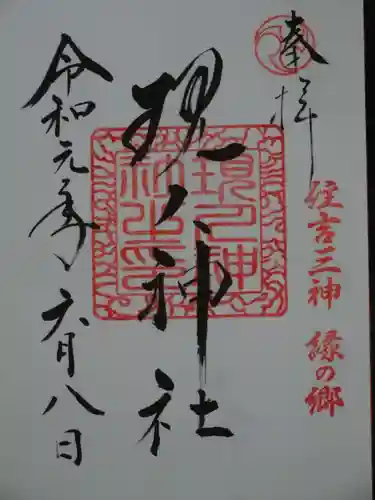 奉拝
住吉三神 縁の郷
現人神社
令和元年六月八日